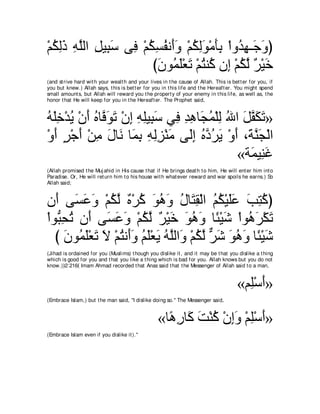 وَجَـهِدُواْ بِأَمْوَلِكُمْ وَأَنفُسِكُمْ فِى سَبِيلِ اللَّهِ ذَلِكُمْ)
(خَيْرٌ لَّكُمْ إِن كُنتُمْ تَعْلَمُونَ
(and strive hard with your wealth and your lives in the cause of Allah. This is better for you, if
you but knew.) Allah says, this is better for you in this life and the Hereafter. You might spend
small amounts, but Allah will reward you the property of your enemy in this life, as well as, the
honor that He will keep for you in the Hereafter. The Prophet said,
«تَكَفَّلَ اللهُ لِلْمُجَاهِدِ فِي سَبِيلِهِ إِنْ تَوَفَّاهُ أَنْ يُدْخِلَهُ
الْجَنَّةَ، أَوْ يَرُدَّهُ إِلَى مَنْزِلِهِ بِمَا نَالَ مِنْ أَجْرٍ أَوْ
غَنِيمَة»
(Allah promised the Mujahid in His cause that if He brings death to him, He will enter him into
Paradise. Or, He will return him to his house with whatever reward and war spoils he earns.) So
Allah said;
(كُتِبَ عَلَيْكُمُ الْقِتَالُ وَهُوَ كُرْهٌ لَّكُمْ وَعَسَى أَن
تَكْرَهُواْ شَيْئًا وَهُوَ خَيْرٌ لَّكُمْ وَعَسَى أَن تُحِبُّواْ
شَيْئًا وَهُوَ شَرٌّ لَّكُمْ وَاللَّهُ يَعْلَمُ وَأَنتُمْ لاَ تَعْلَمُونَ )
(Jihad is ordained for you (Muslims) though you dislike it, and it may be that you dislike a thing
which is good for you and that you like a thing which is bad for you. Allah knows but you do not
know.)(2:216) Imam Ahmad recorded that Anas said that the Messenger of Allah said to a man,
«أَسْلِم»
(Embrace Islam,) but the man said, "I dislike doing so." The Messenger said,
«أَسْلِمْ وَإِنْ كُنْتَ كَارِهًا»
(Embrace Islam even if you dislike it)."